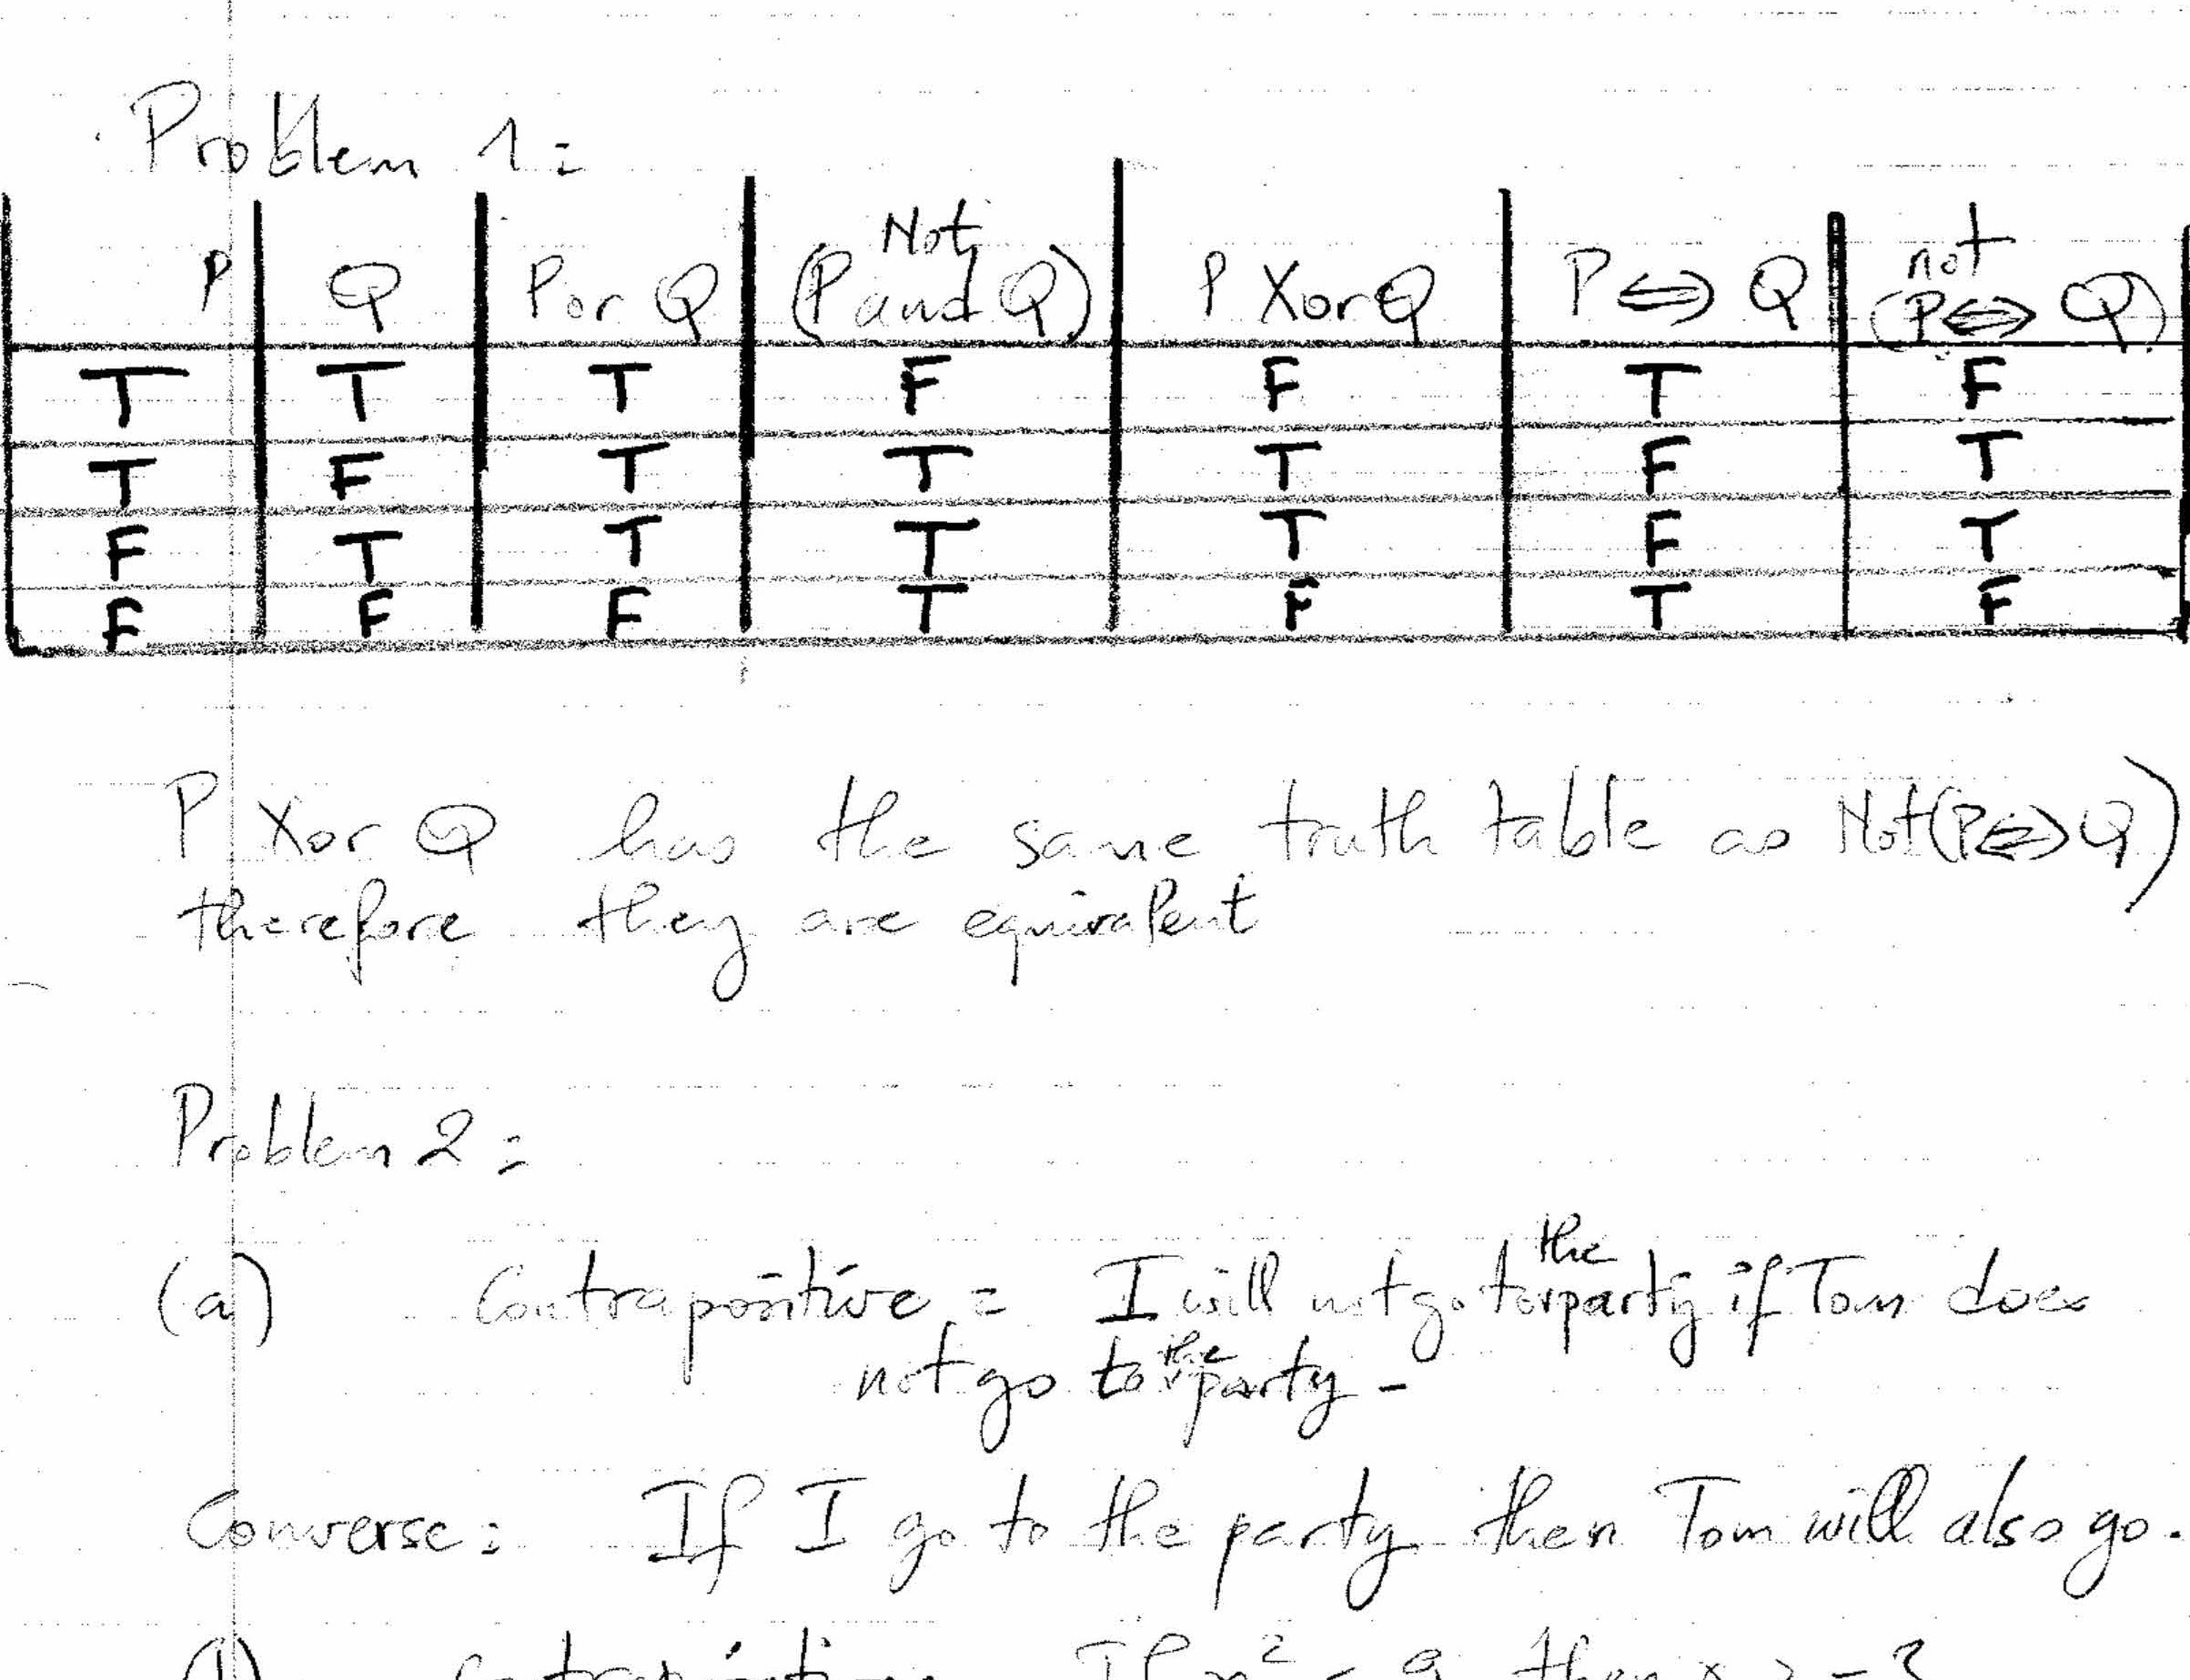 Problem 1:
P Q P or Q Not (P and Q) P Xor Q P ⇔ Q not (P ⇔ Q)
T T T F F T F
T F T T T F T
F T T T T F T
F F F T F T F
P Xor Q has the same truth table as Not(P⇔Q)
therefore they are equivalent
Problem 2:
(a) Contrapositive = I will not go to the party if Tom does
not go to the party -
Converse: If I go to the party then Tom will also go.
If x² < 9 then x > -3